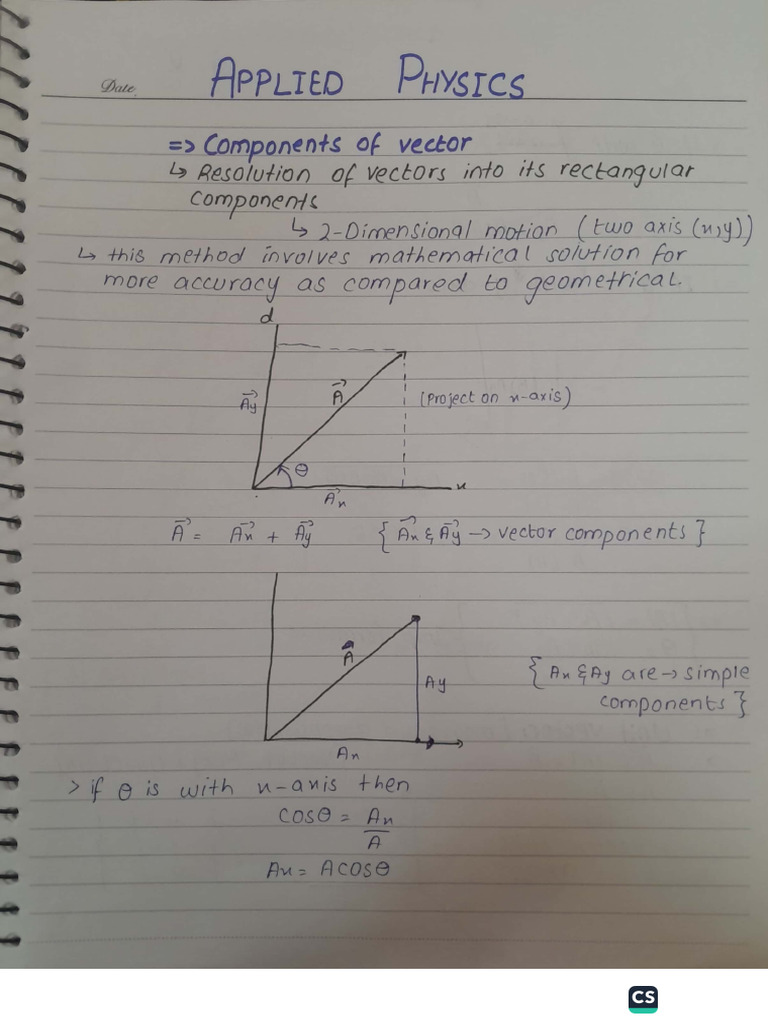 Date.
APPLIED PHYSICS
=> Components of vector
↳ Resolution of vectors into its rectangular
components
↳ 2-Dimensional motion (two axis (x,y))
↳ this method involves mathematical solution for
more accuracy as compared to geometrical.
d
A⃗y
A⃗
(Project on x-axis)
θ
x
A⃗x
A⃗ = A⃗x + A⃗y { A⃗x & A⃗y → vector components }
A⃗
Ay
{ Ax & Ay are → simple
components }
Ax
> if θ is with x-axis then
cosθ = Ax
A
Ax = A cosθ
CS